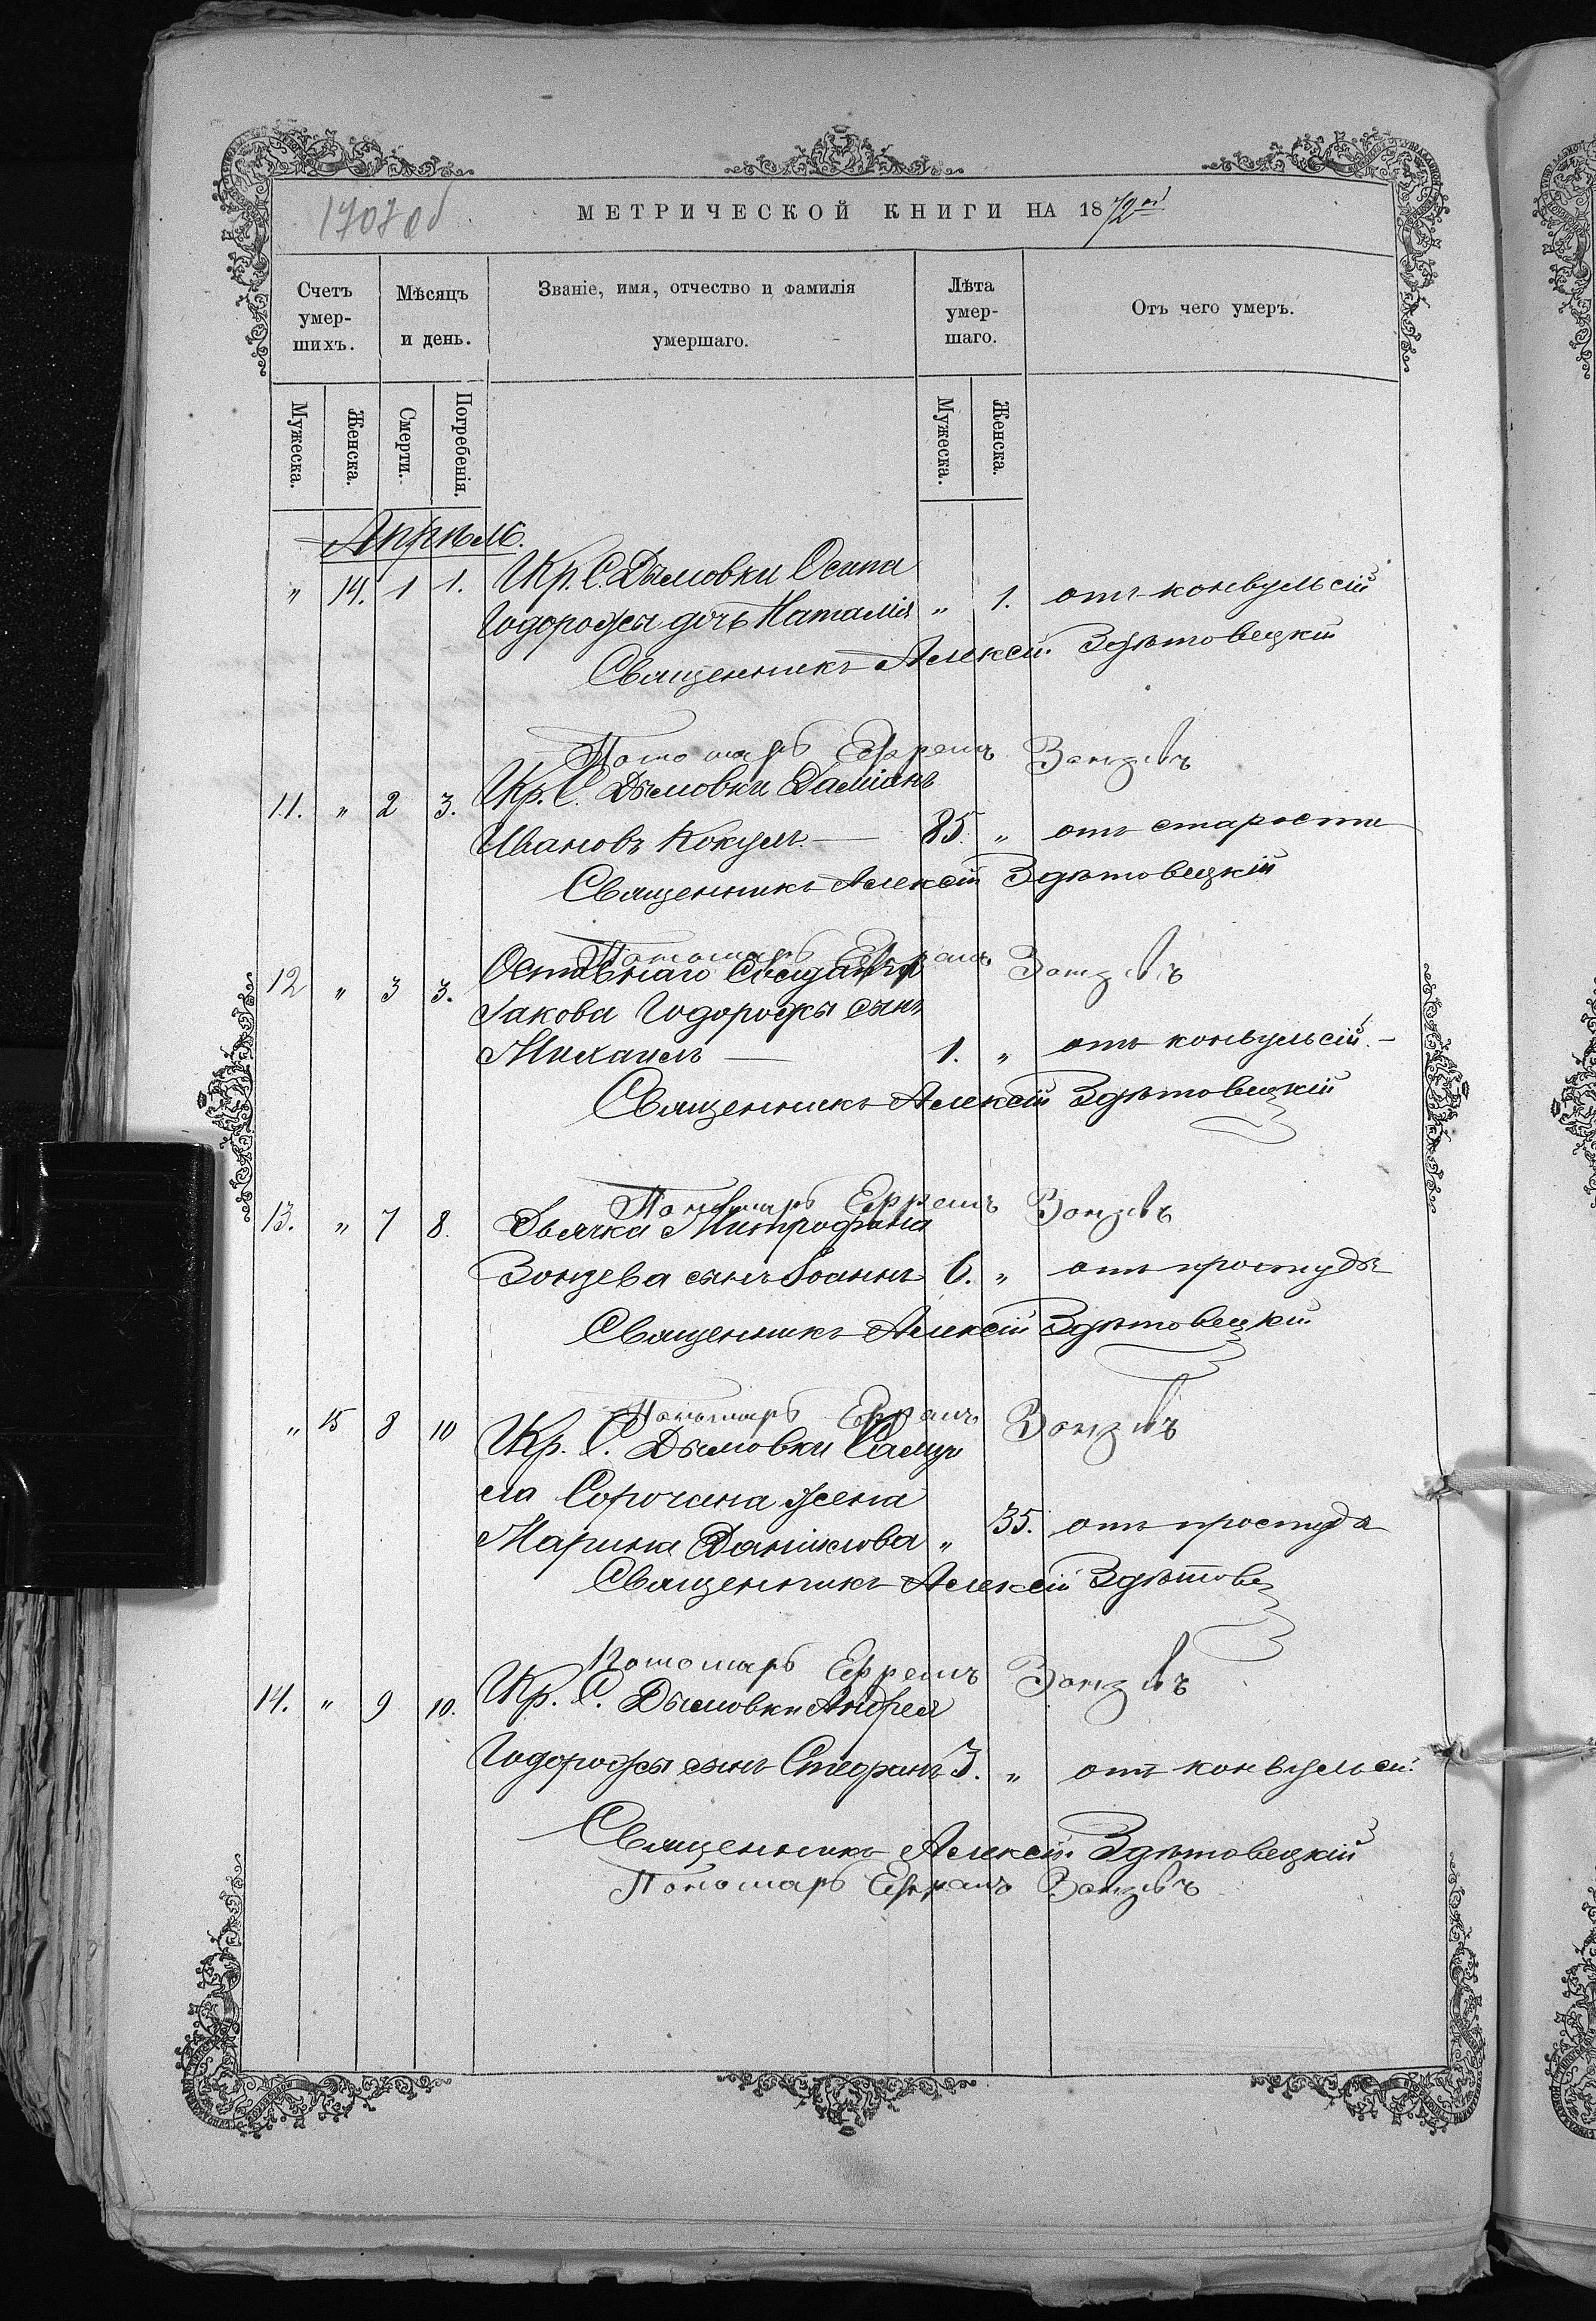 1707 об
МЕТРИЧЕСКОЙ КНИГИ НА 1872й
Счетъ умер-шихъ.
Мѣсяцъ и день.
Званіе, имя, отчество и фамилія умершаго.
Лѣта умер-шаго.
Отъ чего умеръ.
Мужеска. Женска. Смерти. Погребенія. Мужеска. Женска.
Апрѣль.
" 14. 1 1. Кр. С. Дымовки Осипа
Тодорофеи дочь Наталія " 1. отъ конвульсій
Священникъ Алексій Здѣтовецкій
Пономарь Ефремъ Зонзевъ
11. " 2 3. Кр. С. Дымовки Даміанъ
Ивановъ Кокулъ. — 85. " отъ старости
Священникъ Алексій Здѣтовецкій
Пономарь Ефремъ Зонзевъ
12 " 3 3.
Іакова Тодорофеи сынъ
Михаилъ — 1. " отъ конвульсій. –
Священникъ Алексій Здѣтовецкій
Пономарь Ефремъ Зонзевъ
13. " 7 8. Дьячка Митрофана
Зонзева сынъ Іоаннъ 6. " отъ простуды
Священникъ Алексій Здѣтовецкій
Пономарь Ефремъ Зонзевъ
" 15 8 10 Кр. С. Дымовки Саму
ла Сорочана жена
Марина Даніилова " 35. отъ простуды
Священникъ Алексій Здѣтовец
Пономарь Ефремъ Зонзевъ
14. " 9 10. Кр. С. Дымовки Андрея
Тодорофеи сынъ Стефанъ 3. " отъ конвульсій.
Священникъ Алексій Здѣтовецкій
Пономарь Ефремъ Зонзевъ